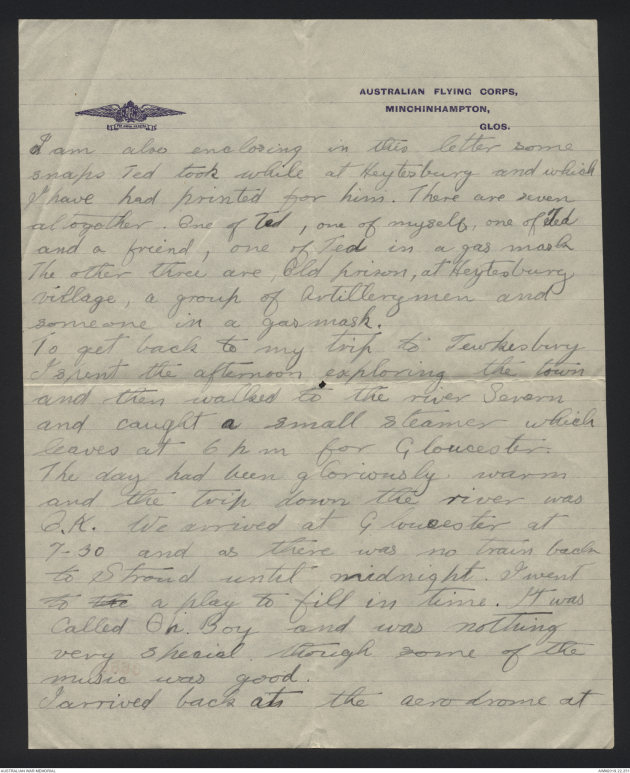 AUSTRALIAN FLYING CORPS,
MINCHINHAMPTON,
GLOS.
I am also enclosing in this letter some
snaps Ted took while at Heytesbury and which
I have had printed for him. There are seven
altogether. One of Ted, one of myself, one of Ted
and a friend, one of Ted in a gas mask
The other three are, Old prison, at Heytesburg
village, a group of Artillerymen and
someone in a gasmask.
To get back to my trip to Tewkesbury
I spent the afternoon exploring the town
and then walked to the river Severn
and caught a small steamer which
leaves at 6 pm for Gloucester.
The day had been gloriously warm
and the trip down the river was
O.K. We arrived at Gloucester at
7-30 and as there was no train back
to Stroud until midnight. I went
to a play to fill in time. It was
called Oh. Boy and was nothing
very special though some of the
music was good.
I arrived back at the aerodrome at
AUSTRALIAN WAR MEMORIAL